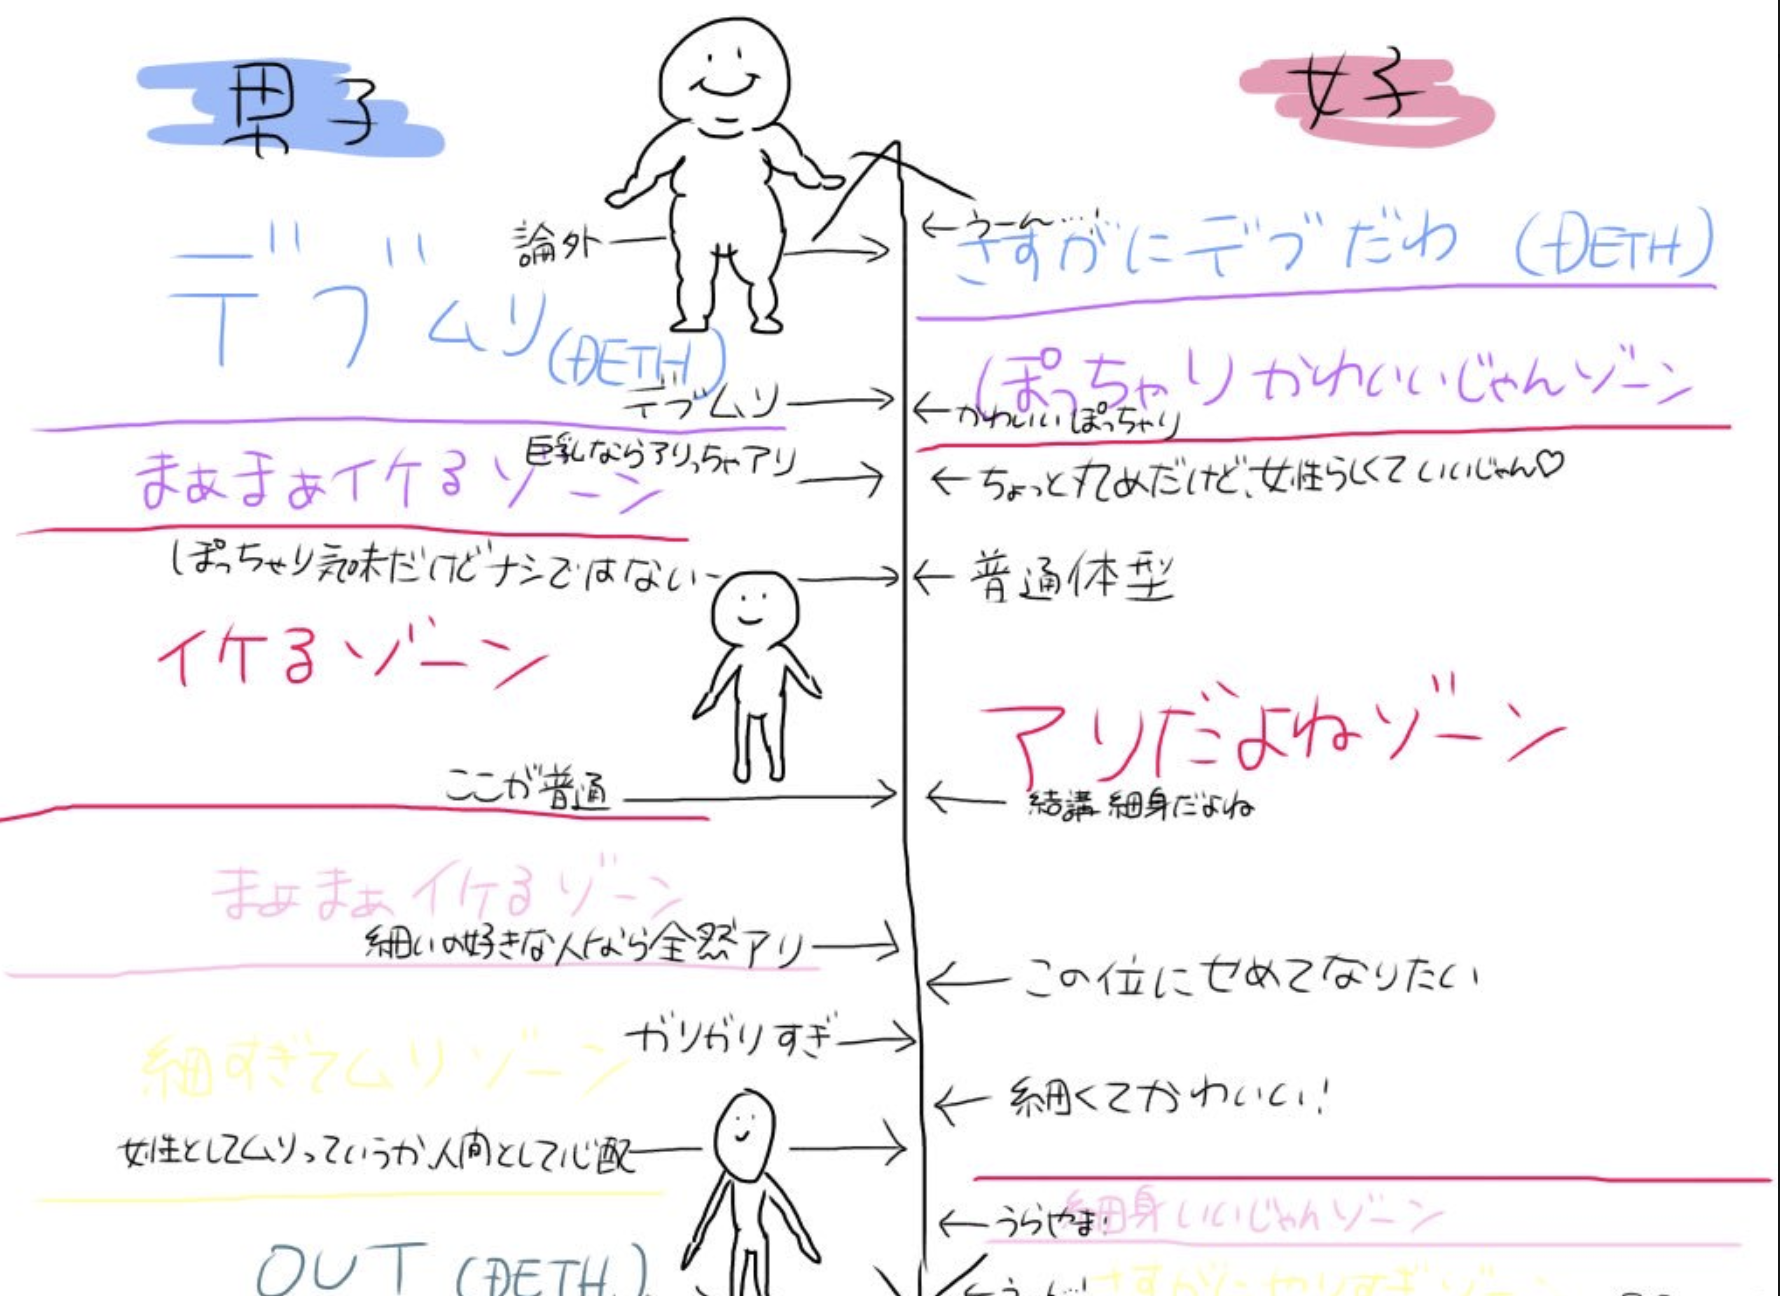 男子
女子
論外
←うーん…!
さすがにデブだわ (DETH)
デブムリ(DETH)
ぽっちゃりかわいいじゃんゾーン
デブムリ
←かわいいぽっちゃり
巨乳ならアリっちゃアリ
まぁまぁイケるゾーン
←ちょっと丸めだけど、女性らしくていいじゃん♡
ぽっちゃり気味だけどナシではない
←普通体型
イケるゾーン
アリだよねゾーン
ここが普通
←結講細身だよね
まぁまぁイケるゾーン
細いの好きな人なら全然アリ
←この位にせめてなりたい
ガリガリすぎ
細すぎてムリゾーン
←細くてかわいい!
女性としてムリっていうか人間として心配
←うらやま!
細身いいじゃんゾーン
OUT (DETH)